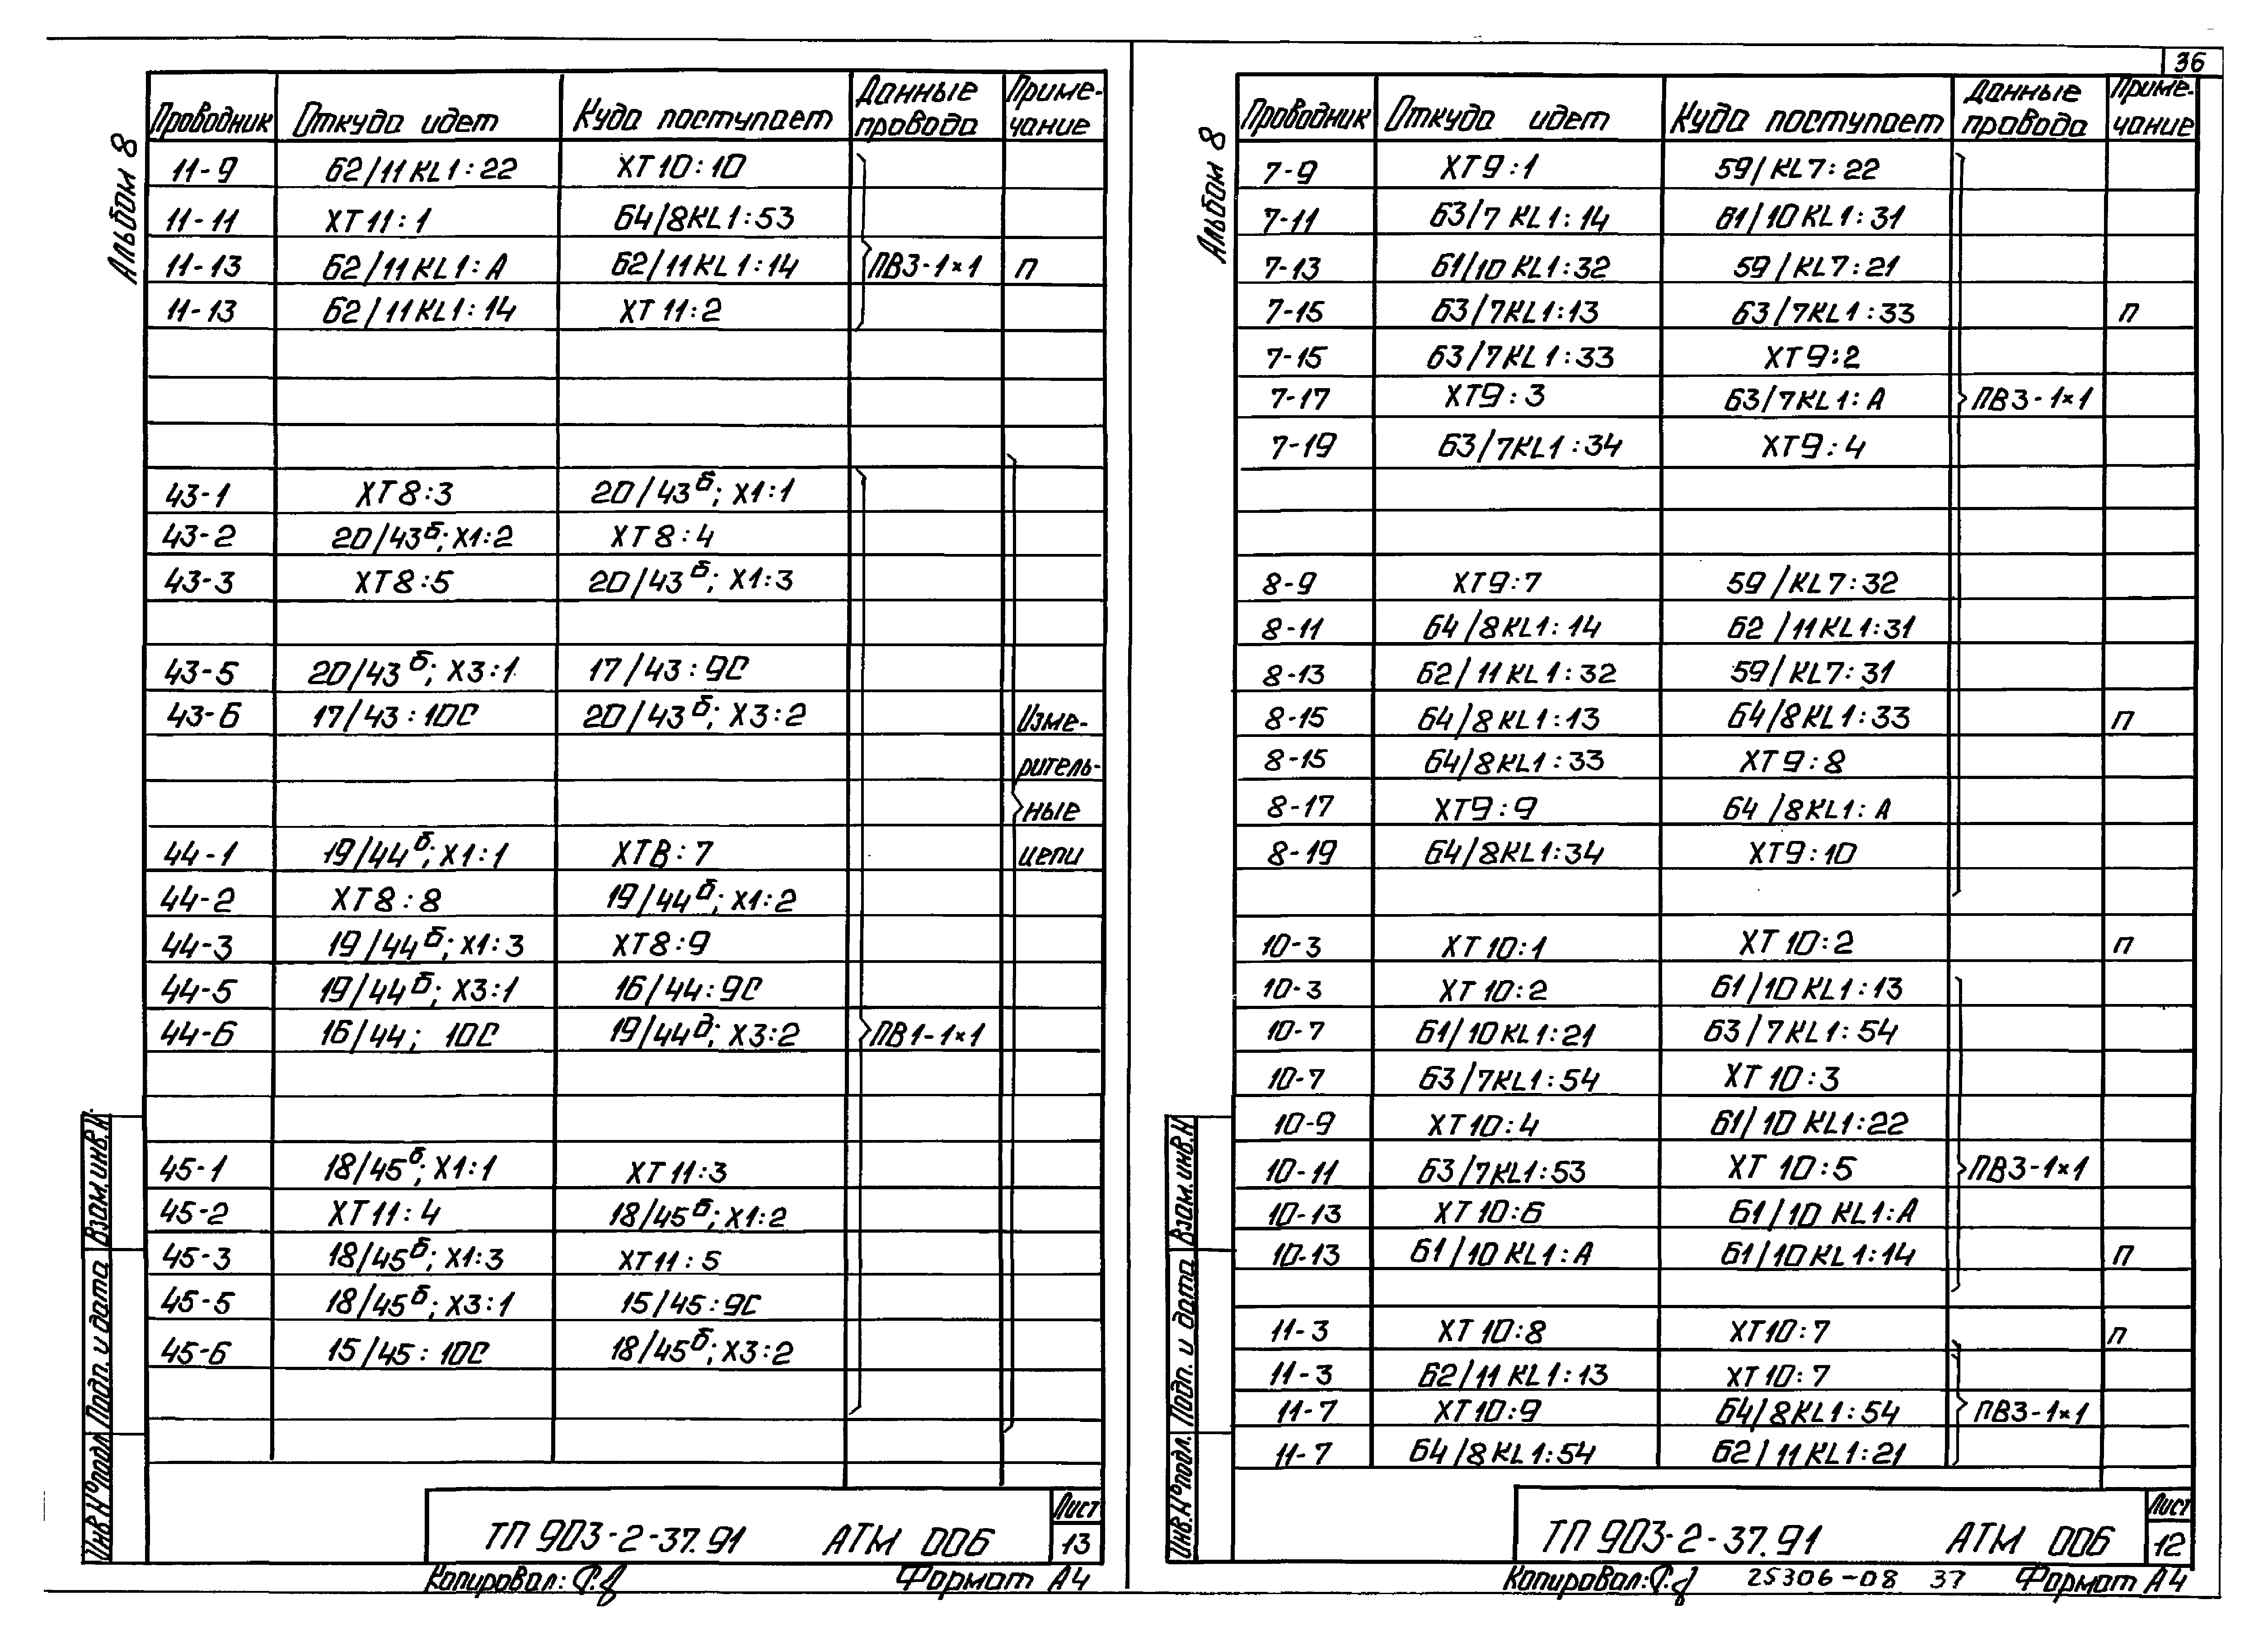 36
Альбом 8
Проводник Откуда идет Куда поступает Данные провода Приме-чание
11-9 62/11KL1:22 XT10:10
11-11 XT11:1 64/8KL1:53
11-13 62/11KL1:A 62/11KL1:14 ПВ3-1×1 П
11-13 62/11KL1:14 XT11:2
43-1 XT8:3 20/43б; X1:1
43-2 20/43б; X1:2 XT8:4
43-3 XT8:5 20/43б; X1:3
43-5 20/43б; X3:1 17/43:9С
43-6 17/43:10С 20/43б; X3:2 Изме-
ритель-
ные
44-1 19/44б; X1:1 XT8:7 цепи
44-2 XT8:8 19/44б; X1:2
44-3 19/44б; X1:3 XT8:9
44-5 19/44б; X3:1 16/44:9С
44-6 16/44; 10С 19/44д; X3:2 ПВ1-1×1
45-1 18/45б; X1:1 XT11:3
45-2 XT11:4 18/45б; X1:2
45-3 18/45б; X1:3 XT11:5
45-5 18/45б; X3:1 15/45:9С
45-6 15/45:10С 18/45б; X3:2
Взам. инв. №
Подп. и дата
Инв. № подл.
ТП 903-2-37.91 АТМ 006 Лист 13
Копировал: Формат А4
Альбом 8
Проводник Откуда идет Куда поступает Данные провода Приме-чание
7-9 XT9:1 59/KL7:22
7-11 63/7KL1:14 61/10KL1:31
7-13 61/10KL1:32 59/KL7:21
7-15 63/7KL1:13 63/7KL1:33 П
7-15 63/7KL1:33 XT9:2
7-17 XT9:3 63/7KL1:A ПВ3-1×1
7-19 63/7KL1:34 XT9:4
8-9 XT9:7 59/KL7:32
8-11 64/8KL1:14 62/11KL1:31
8-13 62/11KL1:32 59/KL7:31
8-15 64/8KL1:13 64/8KL1:33 П
8-15 64/8KL1:33 XT9:8
8-17 XT9:9 64/8KL1:A
8-19 64/8KL1:34 XT9:10
10-3 XT10:1 XT10:2 П
10-3 XT10:2 61/10KL1:13
10-7 61/10KL1:21 63/7KL1:54
10-7 63/7KL1:54 XT10:3
10-9 XT10:4 61/10KL1:22
10-11 63/7KL1:53 XT10:5 ПВ3-1×1
10-13 XT10:6 61/10KL1:A
10-13 61/10KL1:A 61/10KL1:14 П
11-3 XT10:8 XT10:7 П
11-3 62/11KL1:13 XT10:7
11-7 XT10:9 64/8KL1:54 ПВ3-1×1
11-7 64/8KL1:54 62/11KL1:21
Взам. инв. №
Подп. и дата
Инв. № подл.
ТП 903-2-37.91 АТМ 006 Лист 12
Копировал: 25306-08 37 Формат А4